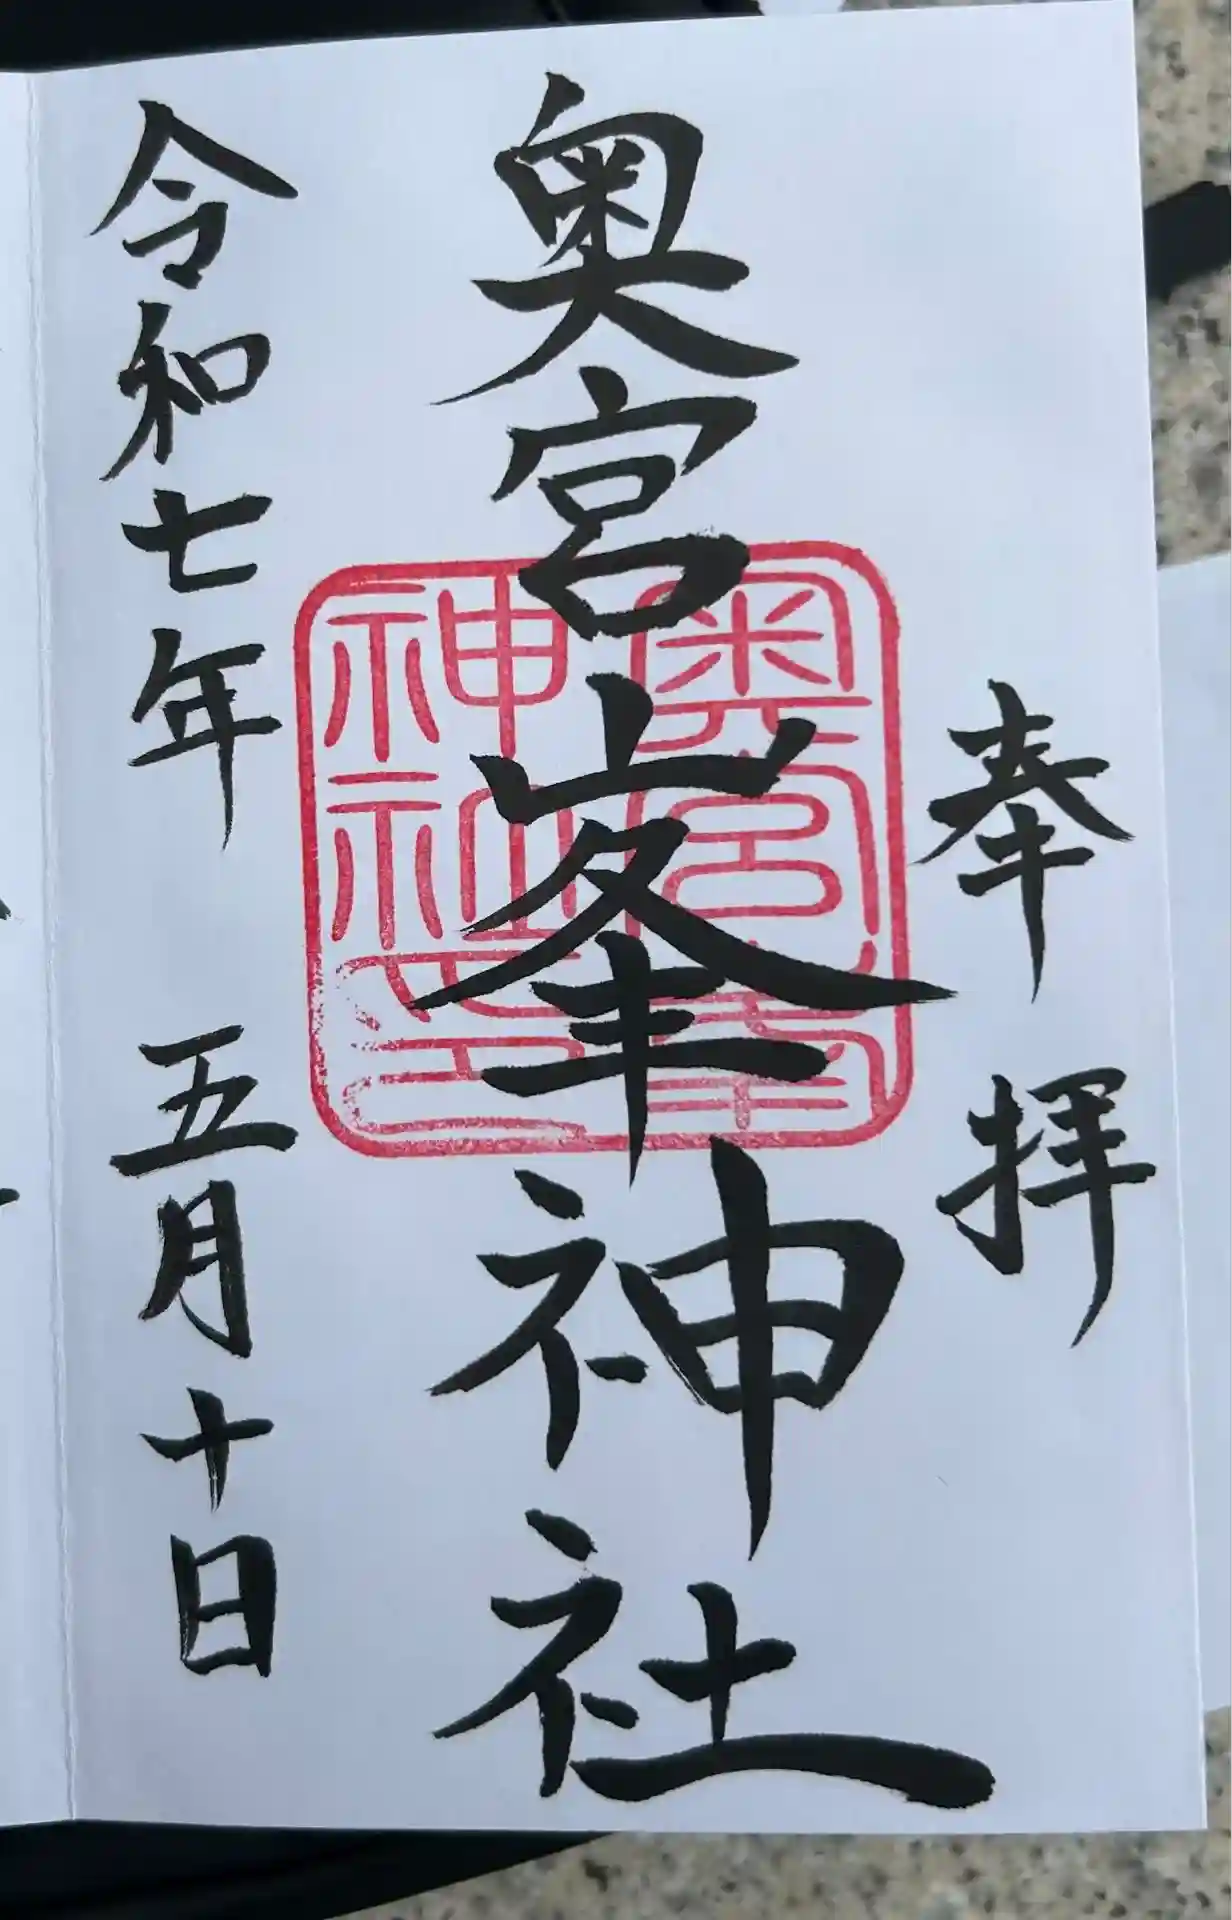 奉拝
奥宮峯神社
令和七年 五月十日
奥宮峯
神社印